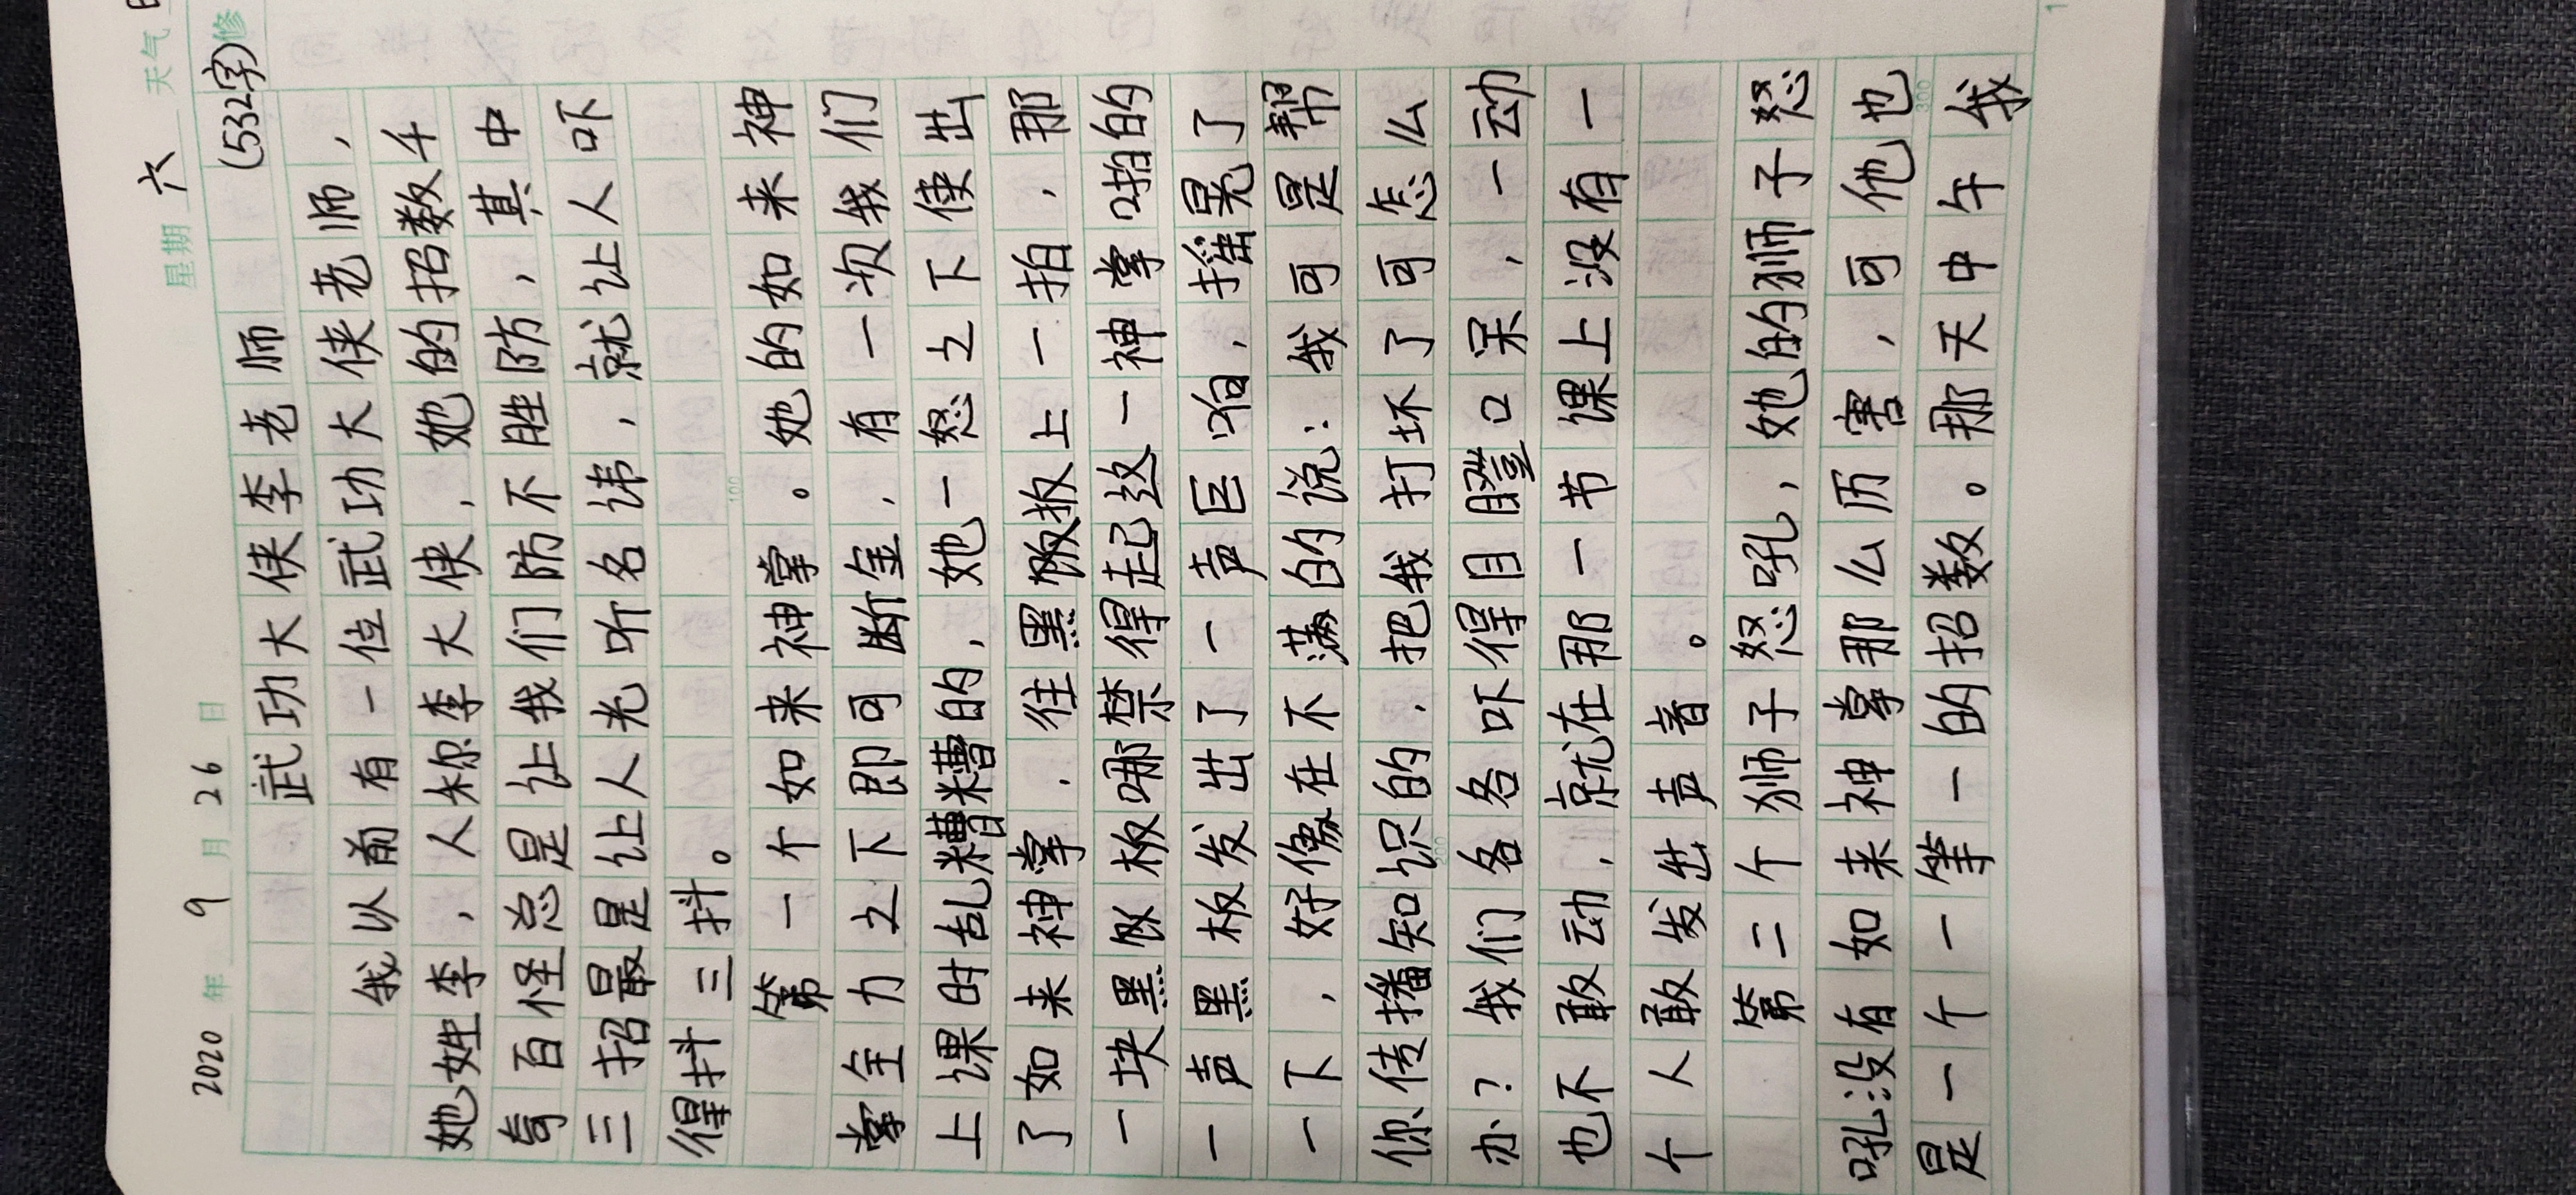 2020年 9月 26日 星期 六 天气
武功大侠李老师 (532字)
我以前有一位武功大侠老师，
她姓李，人称李大侠，她的招数千
奇百怪总是让我们防不胜防，其中
三招最是让人光听名讳，就让人吓
得抖三抖。
100
第一个如来神掌。她的如来神
掌全力之下即可断金，有一次我们
上课时乱糟糟的，她一怒之下使出
了如来神掌，往黑板上一拍，那
一块黑板哪禁得起这一神掌啪的
一声黑板发出了一声巨响，摇晃了
一下，好像在不满的说：我可是帮
你传播知识的，把我打坏了可怎么
200
办？我们各各吓得目瞪口呆，一动
也不敢动，就在那一节课上没有一
个人敢发出声音。
第二个狮子怒吼，她的狮子怒
吼没有如来神掌那么历害，可他也
300
是一个一等一的招数。那天中午我